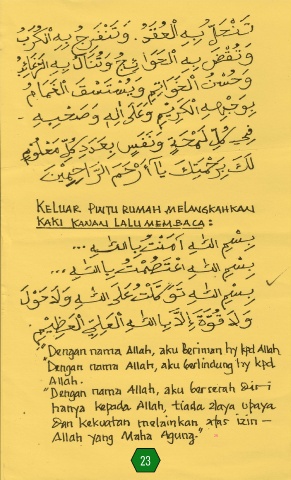 تَنْحَلُّ بِهِ الْعُقَدُ. وَتَنْفَرِجُ بِهِ الْكُرَبُ
وَتُقْضَى بِهِ الْحَوَائِجُ وَتُنَالُ بِهِ الرَّغَائِبُ
وَحُسْنُ الْخَوَاتِمِ وَيُسْتَسْقَى الْغَمَامُ
بِوَجْهِهِ الْكَرِيْمِ وَعَلَى اٰلِهِ وَصَحْبِهِ -
فِي كُلِّ لَمْحَةٍ وَنَفَسٍ بِعَدَدِ كُلِّ مَعْلُوْمٍ
لَكَ بِرَحْمَتِكَ يَا أَرْحَمَ الرَّاحِمِيْنَ
KELUAR PINTU RUMAH MELANGKAHKAN
KAKI KANAN LALU MEMBACA:
بِسْمِ اللهِ اٰمَنْتُ بِاللهِ ...
بِسْمِ اللهِ اعْتَصَمْتُ بِاللهِ ...
بِسْمِ اللهِ تَوَكَّلْتُ عَلَى اللهِ وَلَا حَوْلَ
وَلَا قُوَّةَ اِلَّا بِاللهِ الْعَلِيِّ الْعَظِيْمِ.
"Dengan nama Allah, aku beriman hy kpd Allah
"Dengan nama Allah, aku berlindung hy kpd
Allah.
"Dengan nama Allah, aku berserah diri
hanya kepada Allah, tiada daya upaya
dan kekuatan melainkan atas izin -
Allah yang Maha Agung."
23